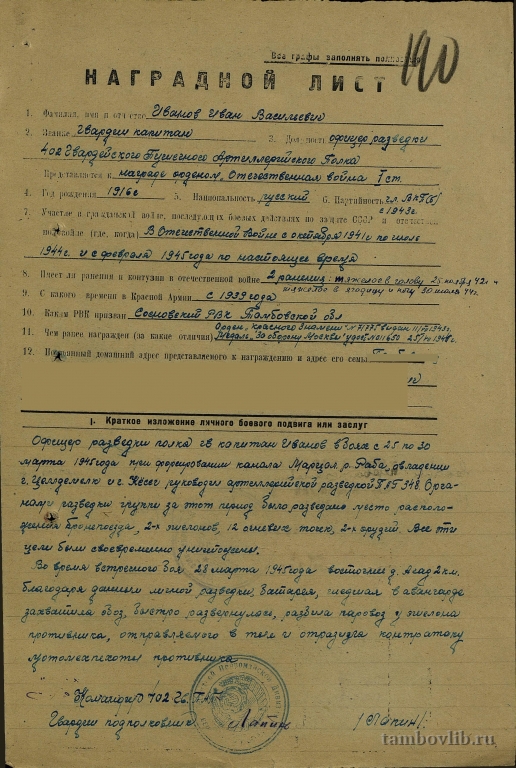 Все графы заполнять полностью
190
НАГРАДНОЙ ЛИСТ
1. Фамилия, имя и отчество Иванов Иван Васильевич
2. Звание Гвардии капитан 3. Должность офицер разведки
402 Гвардейского Пушечного Артиллерийского Полка
Представляется к награде орденом, Отечественная война I ст.
4. Год рождения 1916г 5. Национальность русский 6. Партийность чл. ВКП(б)
с 1943г.
7. Участие в гражданской войне, последующих боевых действиях по защите СССР и отечественной
войне (где, когда) В Отечественной Войне с октября 1941г по июль
1944г. и с февраля 1945 года по настоящее время
8. Имеет ли ранения и контузии в отечественной войне 2 ранения: тяжелое в голову 25 ноября 42г и
тяжело в ягодицу и ногу 30 июля 44г.
9. С какого времени в Красной Армии с 1939 года
10. Каким РВК призван Сосновский РВК Тамбовской обл
11. Чем ранее награжден (за какие отличия) Орден, Красного Знамени
Медаль, За оборону Москвы
12. Постоянный домашний адрес представляемого к награждению и адрес его семьи
I. Краткое изложение личного боевого подвига или заслуг
Офицер разведки полка гв капитан Иванов в боях с 25 по 30
марта 1945 года при форсировании канала Марцол р. Раба, овладении
г. Целлдемелк и с Кёсег руководил артиллерийской разведкой ПАГ 348. Орга-
нами разведки группы за этот период было разведано место располо-
жения бронепоезда, 2-х эшелонов, 12 огневых точек, 2-х орудий. Все эти
цели были своевременно уничтожены.
Во время встречного боя 28 марта 1945 года восточнее д. Асад 2 км.
благодаря данным личной разведки, батарея, шедшая в авангарде
захватила обоз, быстро развернулась, разбила паровоз у эшелона
противника, отправляемого в тыл и отразила контратаку
мотомехпехоты противника
Командир 402 Гв. ПАП
Гвардии подполковник Лапин /Лапин/
tambovlib.ru